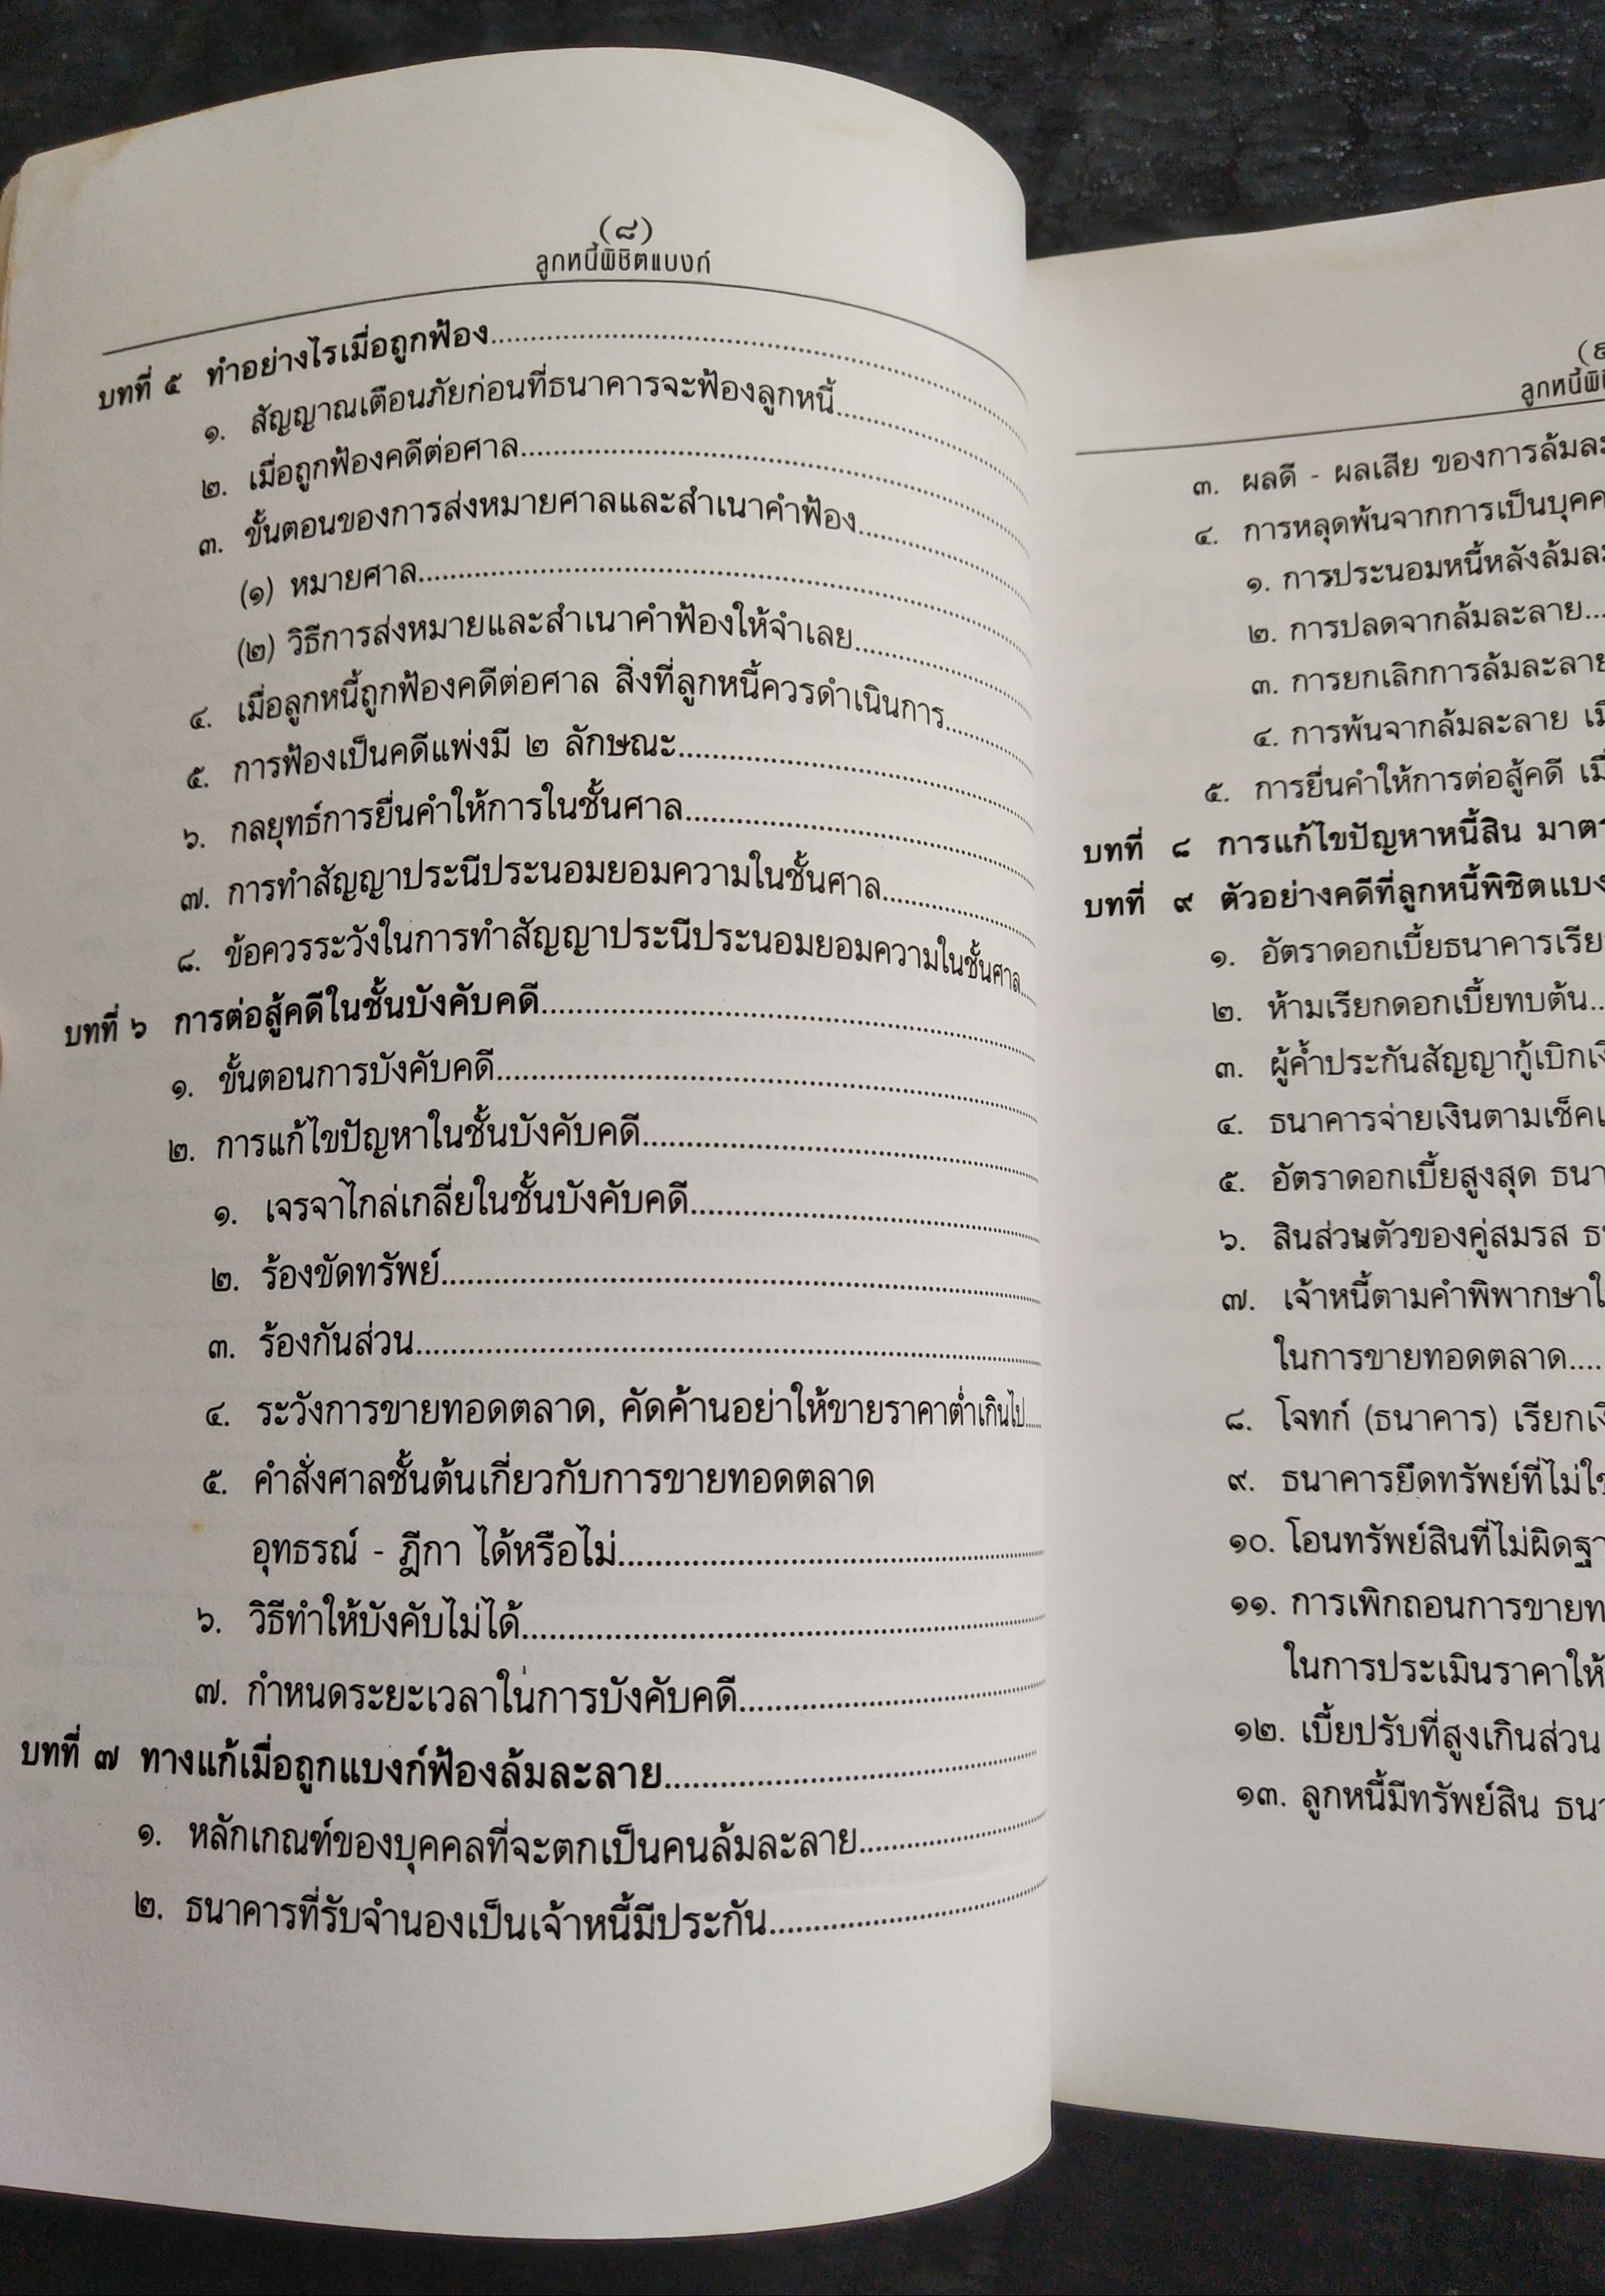 (๘)
ลูกหนี้พิชิตแบงก์
บทที่ ๕ ทำอย่างไรเมื่อถูกฟ้อง
๑. สัญญาณเตือนภัยก่อนที่ธนาคารจะฟ้องลูกหนี้
๒. เมื่อถูกฟ้องคดีต่อศาล
๓. ขั้นตอนของการส่งหมายศาลและสำเนาคำฟ้อง
(๑) หมายศาล
(๒) วิธีการส่งหมายและสำเนาคำฟ้องให้จำเลย
๔. เมื่อลูกหนี้ถูกฟ้องคดีต่อศาล สิ่งที่ลูกหนี้ควรดำเนินการ
๕. การฟ้องเป็นคดีแพ่งมี ๒ ลักษณะ
๖. กลยุทธ์การยื่นคำให้การในชั้นศาล
๗. การทำสัญญาประนีประนอมยอมความในชั้นศาล
๘. ข้อควรระวังในการทำสัญญาประนีประนอมยอมความในชั้นศาล
บทที่ ๖ การต่อสู้คดีในชั้นบังคับคดี
๑. ขั้นตอนการบังคับคดี
๒. การแก้ไขปัญหาในชั้นบังคับคดี
๑. เจรจาไกล่เกลี่ยในชั้นบังคับคดี
๒. ร้องขัดทรัพย์
๓. ร้องกันส่วน
๔. ระวังการขายทอดตลาด, คัดค้านอย่าให้ขายราคาต่ำเกินไป
๕. คำสั่งศาลชั้นต้นเกี่ยวกับการขายทอดตลาด
อุทธรณ์ - ฎีกา ได้หรือไม่
๖. วิธีทำให้บังคับไม่ได้
๗. กำหนดระยะเวลาในการบังคับคดี
บทที่ ๗ ทางแก้เมื่อถูกแบงก์ฟ้องล้มละลาย
๑. หลักเกณฑ์ของบุคคลที่จะตกเป็นคนล้มละลาย
๒. ธนาคารที่รับจำนองเป็นเจ้าหนี้มีประกัน
ลูกหนี้
๓. ผลดี - ผลเสีย ของการล้มละ
๔. การหลุดพ้นจากการเป็นบุคค
๑. การประนอมหนี้หลังล้มละ
๒. การปลดจากล้มละลาย
๓. การยกเลิกการล้มละลาย
๔. การพ้นจากล้มละลาย
๕. การยื่นคำให้การต่อสู้คดี
บทที่ ๘ การแก้ไขปัญหาหนี้สิน
บทที่ ๙ ตัวอย่างคดีที่ลูกหนี้พิชิตแบง
๑. อัตราดอกเบี้ยธนาคารเรีย
๒. ห้ามเรียกดอกเบี้ยทบต้น
๓. ผู้ค้ำประกันสัญญากู้เบิก
๔. ธนาคารจ่ายเงินตามเช็ค
๕. อัตราดอกเบี้ยสูงสุด ธนา
๖. สินส่วนตัวของคู่สมรส
๗. เจ้าหนี้ตามคำพิพากษา
ในการขายทอดตลาด
๘. โจทก์ (ธนาคาร) เรียก
๙. ธนาคารยึดทรัพย์ที่ไม่ใช่
๑๐. โอนทรัพย์สินที่ไม่ผิดฐา
๑๑. การเพิกถอนการขายท
ในการประเมินราคาให้
๑๒. เบี้ยปรับที่สูงเกินส่วน
๑๓. ลูกหนี้มีทรัพย์สิน ธนา